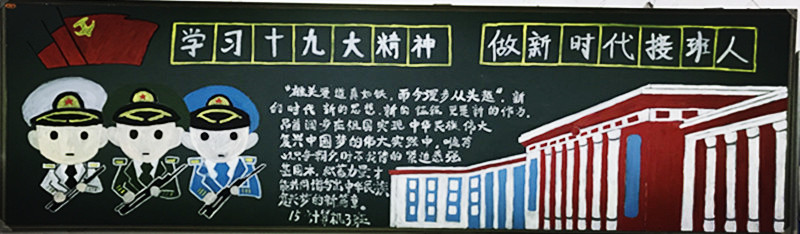 学习十九大精神 做新时代接班人
"雄关漫道真如铁，而今迈步从头越"，新
的时代 新的思想，新的征征 更是新的作为，
昂首阔步在祖国实现 中华民族 伟大
复兴中国梦的伟大实践中，唯有
以只争朝夕时不我待的紧迫感强
基固本，
共同谱写出中华民族
复兴梦的新篇章。
15计算机3班